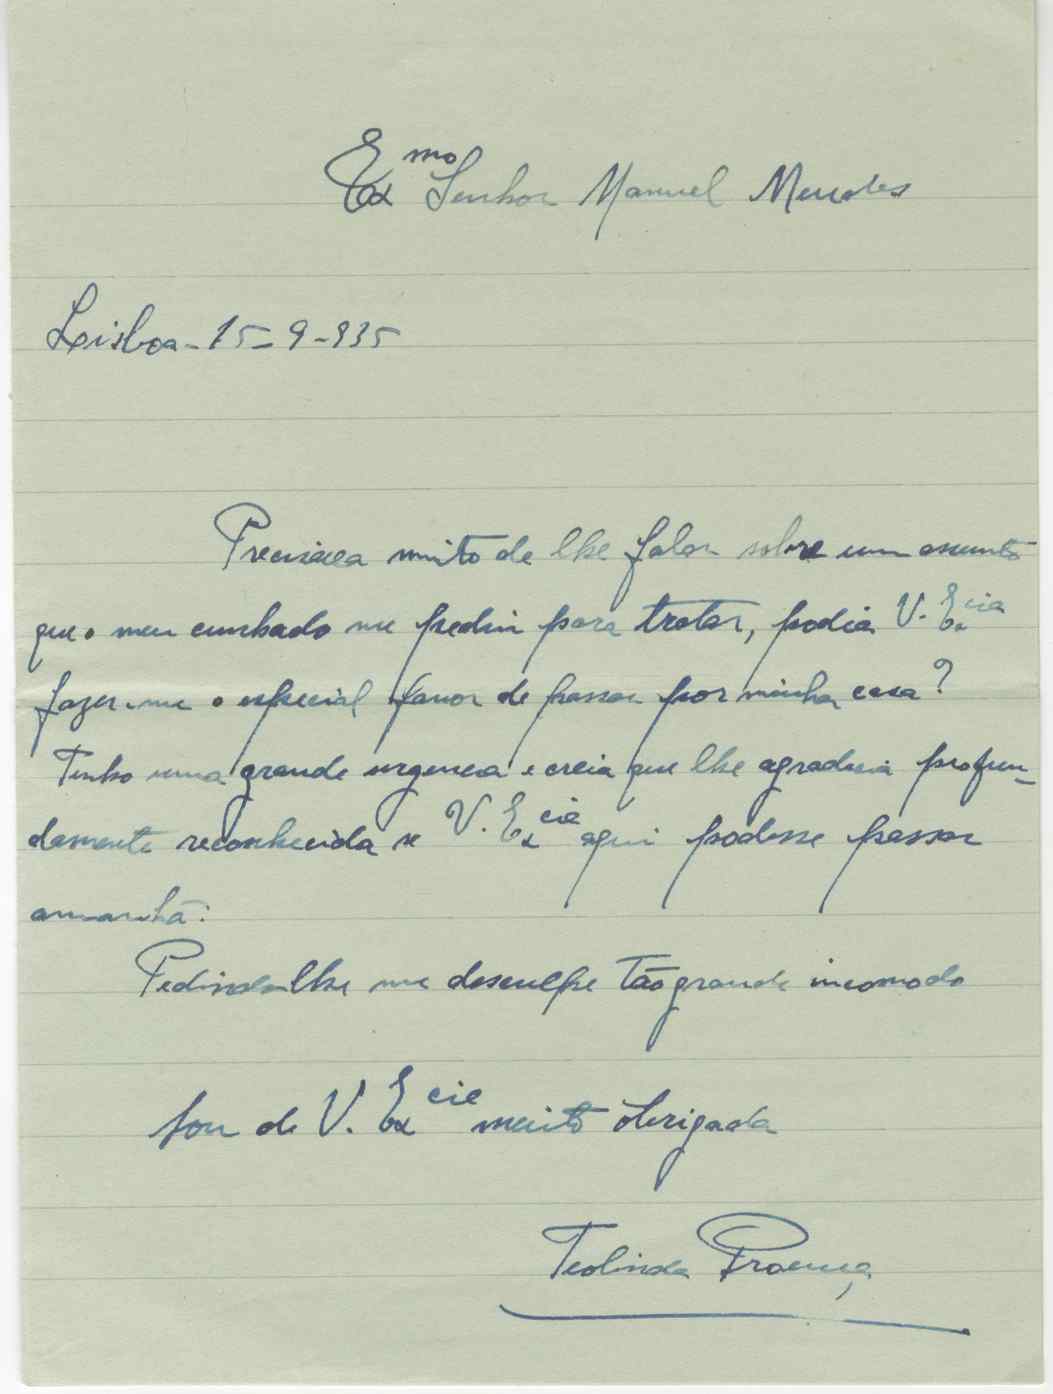 Exmo Senhor Manuel Mendes
Lisboa - 15 - 9 - 935
Precisava muito de lhe falar sobre um assunto
que o meu cunhado me pediu para tratar, podia V. Excia
fazer-me o especial favor de passar por minha casa?
Tenho uma grande urgencia e creia que lhe agradecia profun-
damente reconhecida se V. Excia aqui podesse passar
amanhã.
Pedindo-lhe me desculpe tão grande incomodo
Sou de V. Excia muito obrigada
Teolinda Proença